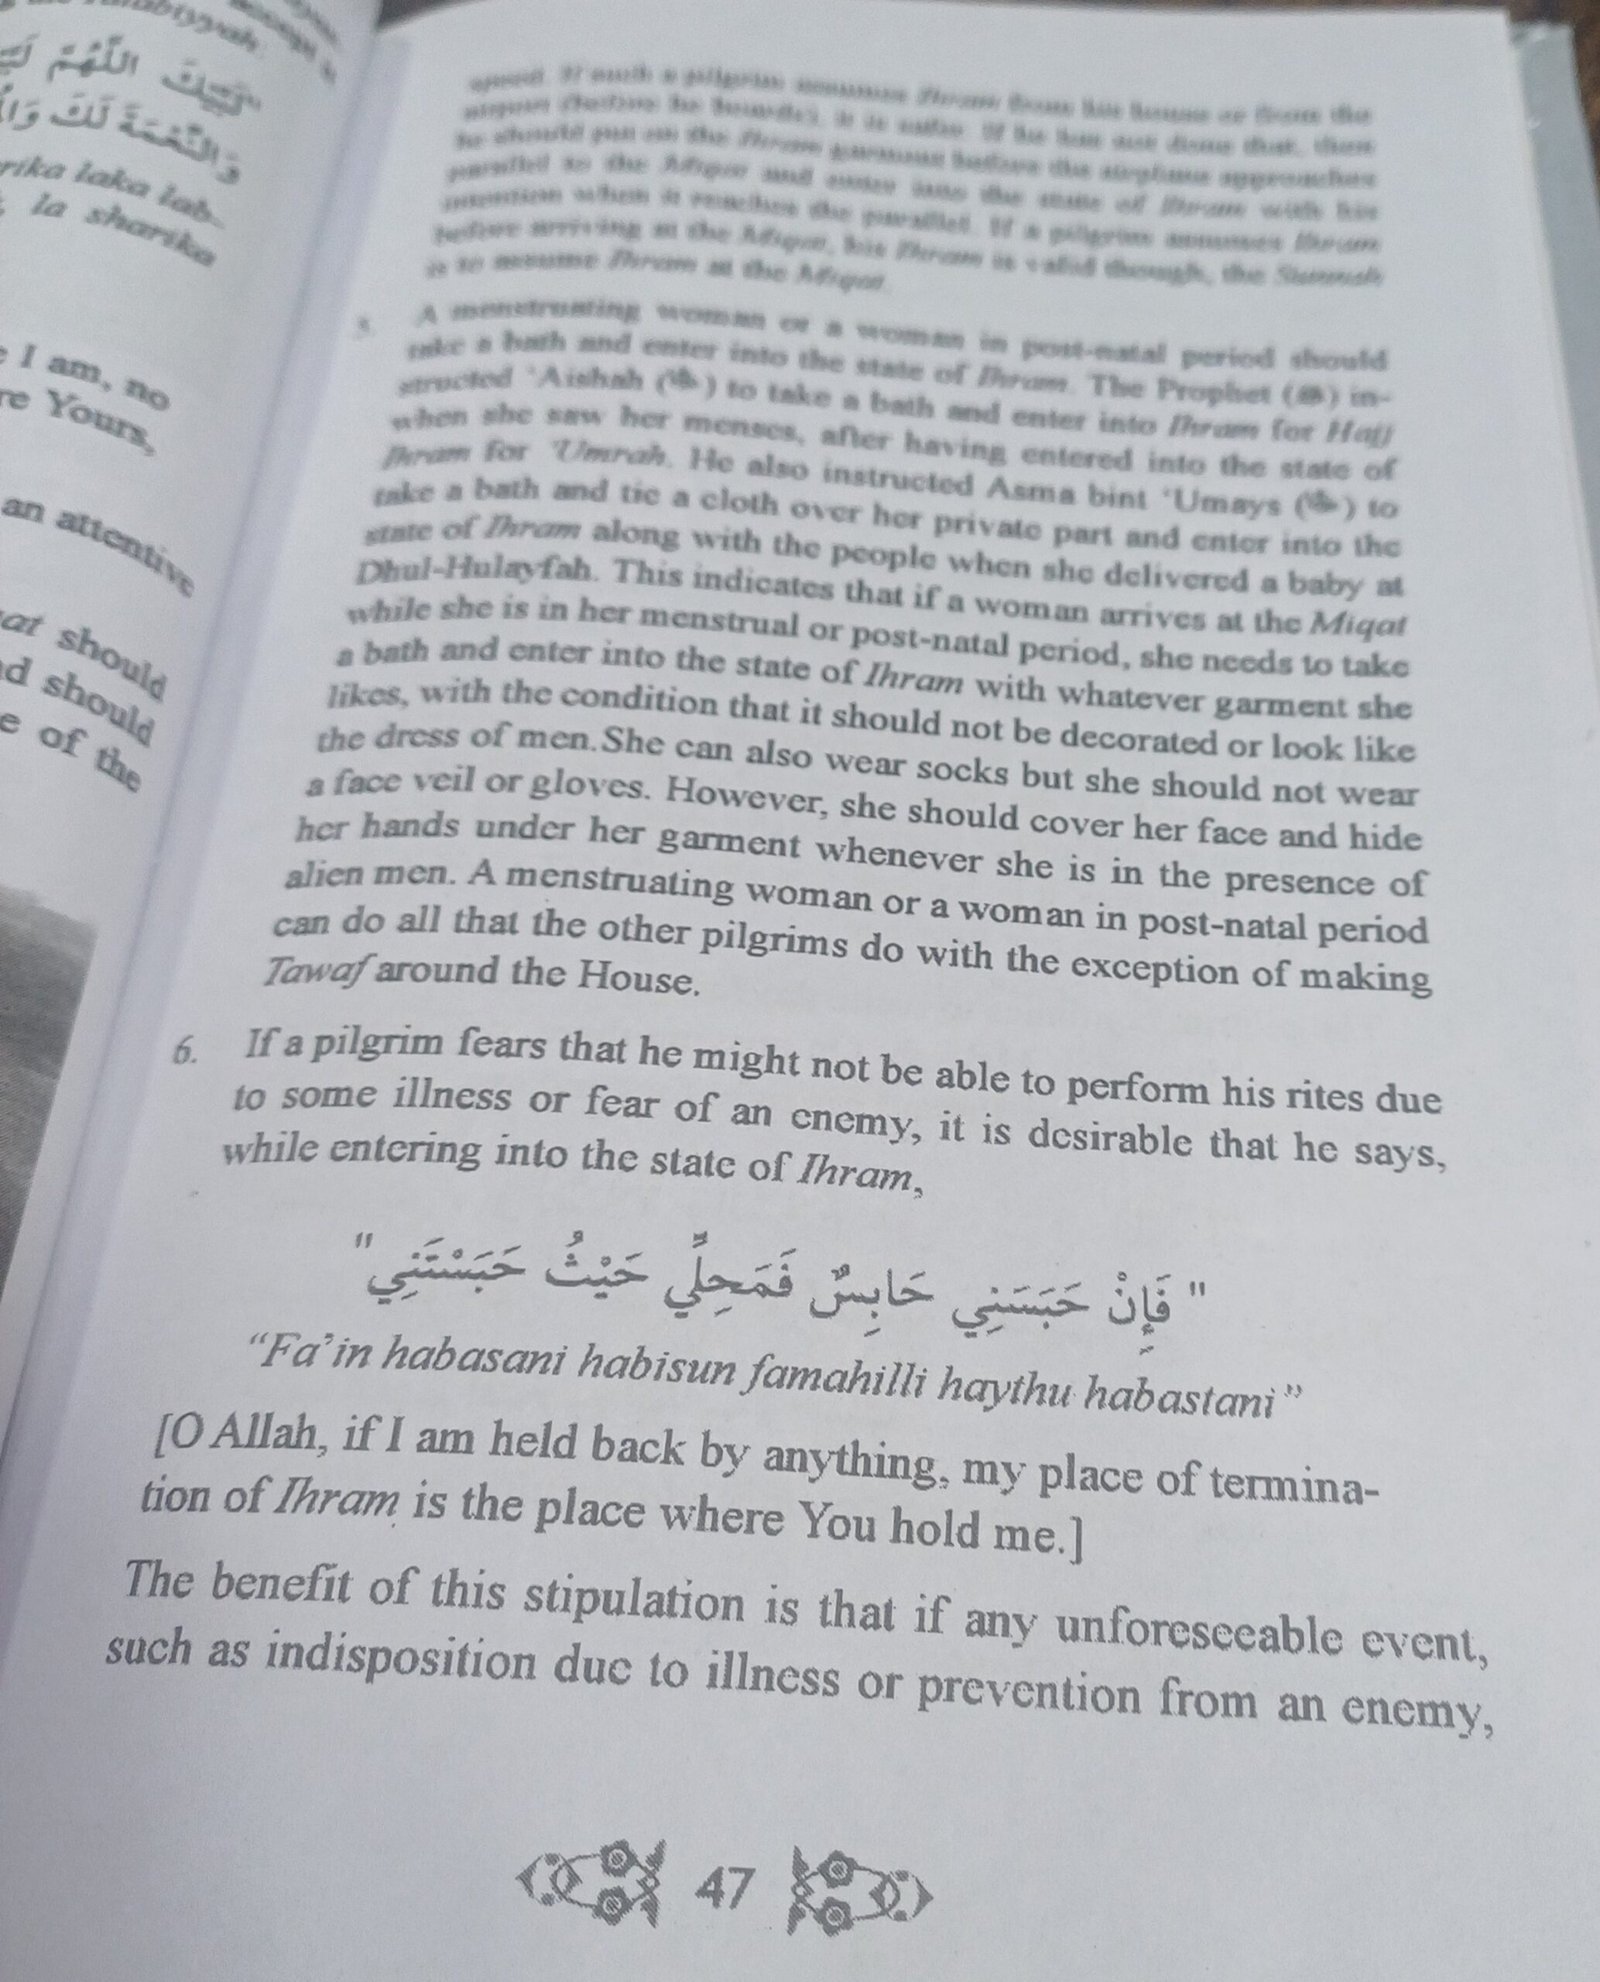 تَبَّيْكَ اللَّهُمَّ
وَالنِّعْمَةَ لَكَ
rika laka lab-
la sharika
I am, no
re Yours,
an attentive
at should
d should
e of the
If such a pilgrim assumes Ihram from his house or from the
airport (before he boards), it is safer. If he has not done that, then
he should put on the Ihram garment before the airplane approaches
parallel to the Miqat and enter into the state of Ihram with his
intention when it reaches the parallel. If a pilgrim assumes Ihram
before arriving at the Miqat, his Ihram is valid though, the Sunnah
is to assume Ihram at the Miqat.
A menstruating woman or a woman in post-natal period should
take a bath and enter into the state of Ihram. The Prophet (ﷺ) in-
structed 'Aishah () to take a bath and enter into Ihram for Hajj
when she saw her menses, after having entered into the state of
Ihram for 'Umrah. He also instructed Asma bint 'Umays () to
take a bath and tie a cloth over her private part and enter into the
state of Ihram along with the people when she delivered a baby at
Dhul-Hulayfah. This indicates that if a woman arrives at the Miqat
while she is in her menstrual or post-natal period, she needs to take
a bath and enter into the state of Ihram with whatever garment she
likes, with the condition that it should not be decorated or look like
the dress of men.She can also wear socks but she should not wear
a face veil or gloves. However, she should cover her face and hide
her hands under her garment whenever she is in the presence of
alien men. A menstruating woman or a woman in post-natal period
can do all that the other pilgrims do with the exception of making
Tawaf around the House.
6. If a pilgrim fears that he might not be able to perform his rites due
to some illness or fear of an enemy, it is desirable that he says,
while entering into the state of Ihram,
" فَإِنْ حَبَسَنِي حَابِسٌ فَمَحِلِّي حَيْثُ حَبَسْتَنِي "
“Fa’in habasani habisun famahilli haythu habastani”
[O Allah, if I am held back by anything, my place of termina-
tion of Ihram is the place where You hold me.]
The benefit of this stipulation is that if any unforeseeable event,
such as indisposition due to illness or prevention from an enemy,
47